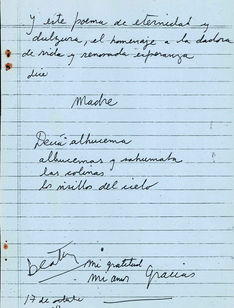 Y este poema de eternidad y
dulzura, el homenaje a la dadora
de vida y renovada esperanza
dice
Madre
Decía alhucema
alhucemas y sahumaba
las colinas
los visillos del cielo
mi gratitud
mi amor Gracias
17 de octubre